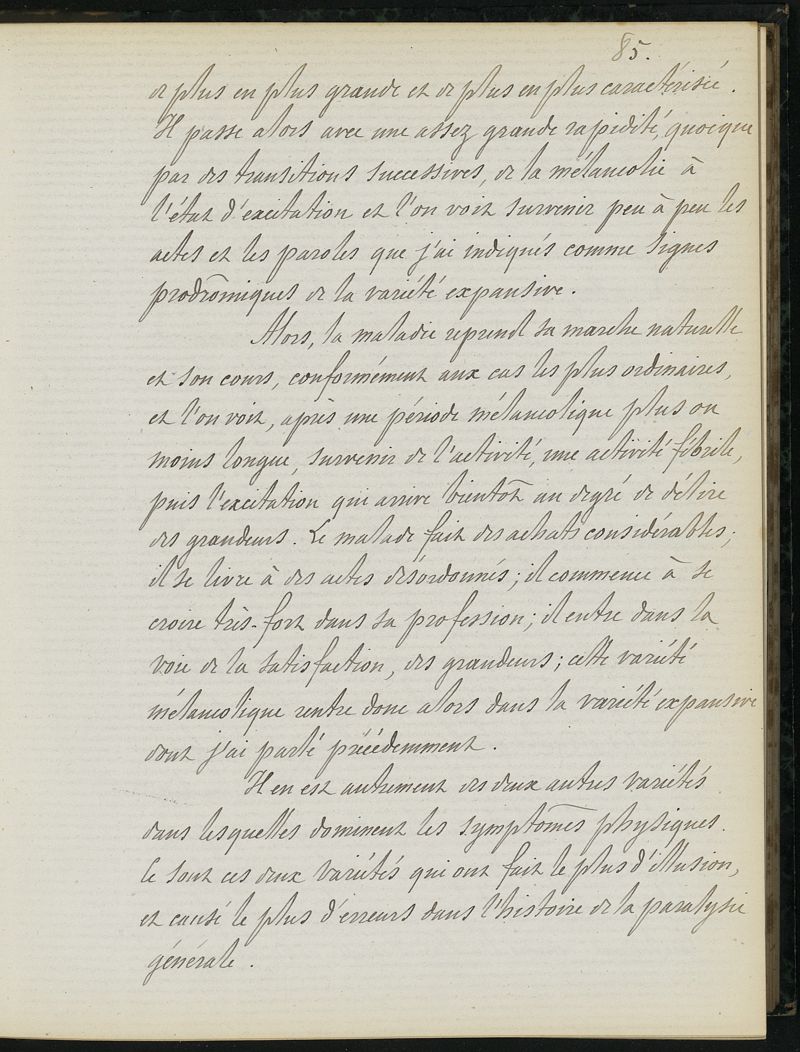 85.
de plus en plus grande et de plus en plus caractérisée.
Il passe alors avec une assez grande rapidité, quoique
par des transitions successives, de la mélancolie à
l'état d'excitation et l'on voit survenir peu à peu les
actes et les paroles que j'ai indiqués comme signes
prodrômiques de la variété expansive.
Alors, la maladie reprend sa marche naturelle
et son cours, conformément aux cas les plus ordinaires,
et l'on voit, après une période mélancolique plus ou
moins longue, survenir de l'activité, une activité fébrile,
puis l'excitation qui arrive bientôt au degré de délire
des grandeurs. Le malade fait des achats considérables;
il se livre à des actes désordonnés; il commence à se
croire très-fort dans sa profession; il entre dans la
voie de la satisfaction, des grandeurs; cette variété
mélancolique rentre donc alors dans la variété expansive
dont j'ai parlé précédemment.
Il en est autrement des deux autres variétés
dans lesquelles dominent les symptômes physiques.
Ce sont ces deux variétés qui ont fait le plus d'illusion,
et causé le plus d'erreurs dans l'histoire de la paralysie
générale.